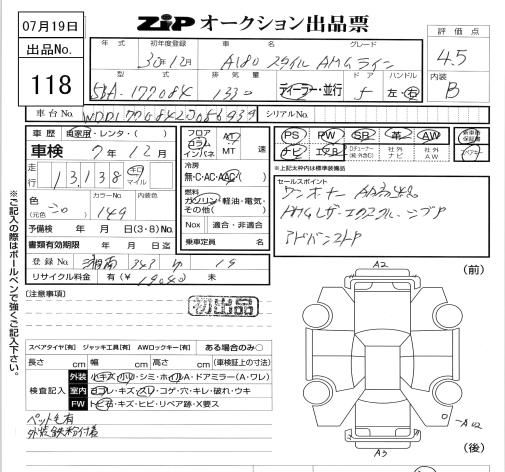 07月19日
出品No.
118
ZIP オークション出品票
評価点
4.5
内装
B
年式 初年度登録 車名 グレード
30年12月 A180 スタイル AMGライン
型式 排気量 ドア ハンドル
5BA-177084 1330 ディーラー・並行 5 左・右
車台No.
シリアルNo.
車歴 自家用・レンタ・( )
車検 7年12月
走行 13,138 km マイル
色 カラーNo. 内装色
(元色 ) 149
予備検 年 月 日(3・8)No.
書類有効期限 年 月 日迄
登録No. 湘南 343 19
リサイクル料金 有(¥ ) 未
フロア AT
コラム
インパネ MT 速
冷房
無・C・AC・AAC( )
燃料
ガソリン・軽油・電気・
その他( )
Nox 適合・非適合
乗車定員 名
PS PW SR 革 AW
ナビ エアB Dチューナー (純・外含む) 社外ナビ 社外AW
新車時保証書
スペアキー
*上記太枠内は標準装備品
セールスポイント
ワンオーナー
アドバンストP
[注意事項]
初出品
※ご記入の際はボールペンで強くご記入下さい。
スペアタイヤ[有] ジャッキ工具[有] AWロックキー[有] ある場合のみ○
長さ cm 幅 cm 高さ cm (車検証上の寸法)
検査記入
外装 小キズ・凹・シミ・ホイルA・ドアミラー(A・ワレ)
室内 ヨゴレ・キズ・スリ・コゲ・穴・キレ・破れ・ウキ
FW トビ石・キズ・ヒビ・リペア跡・X要ス
ペット毛有
外装鉄粉付着
A2
(前)
A3
(後)